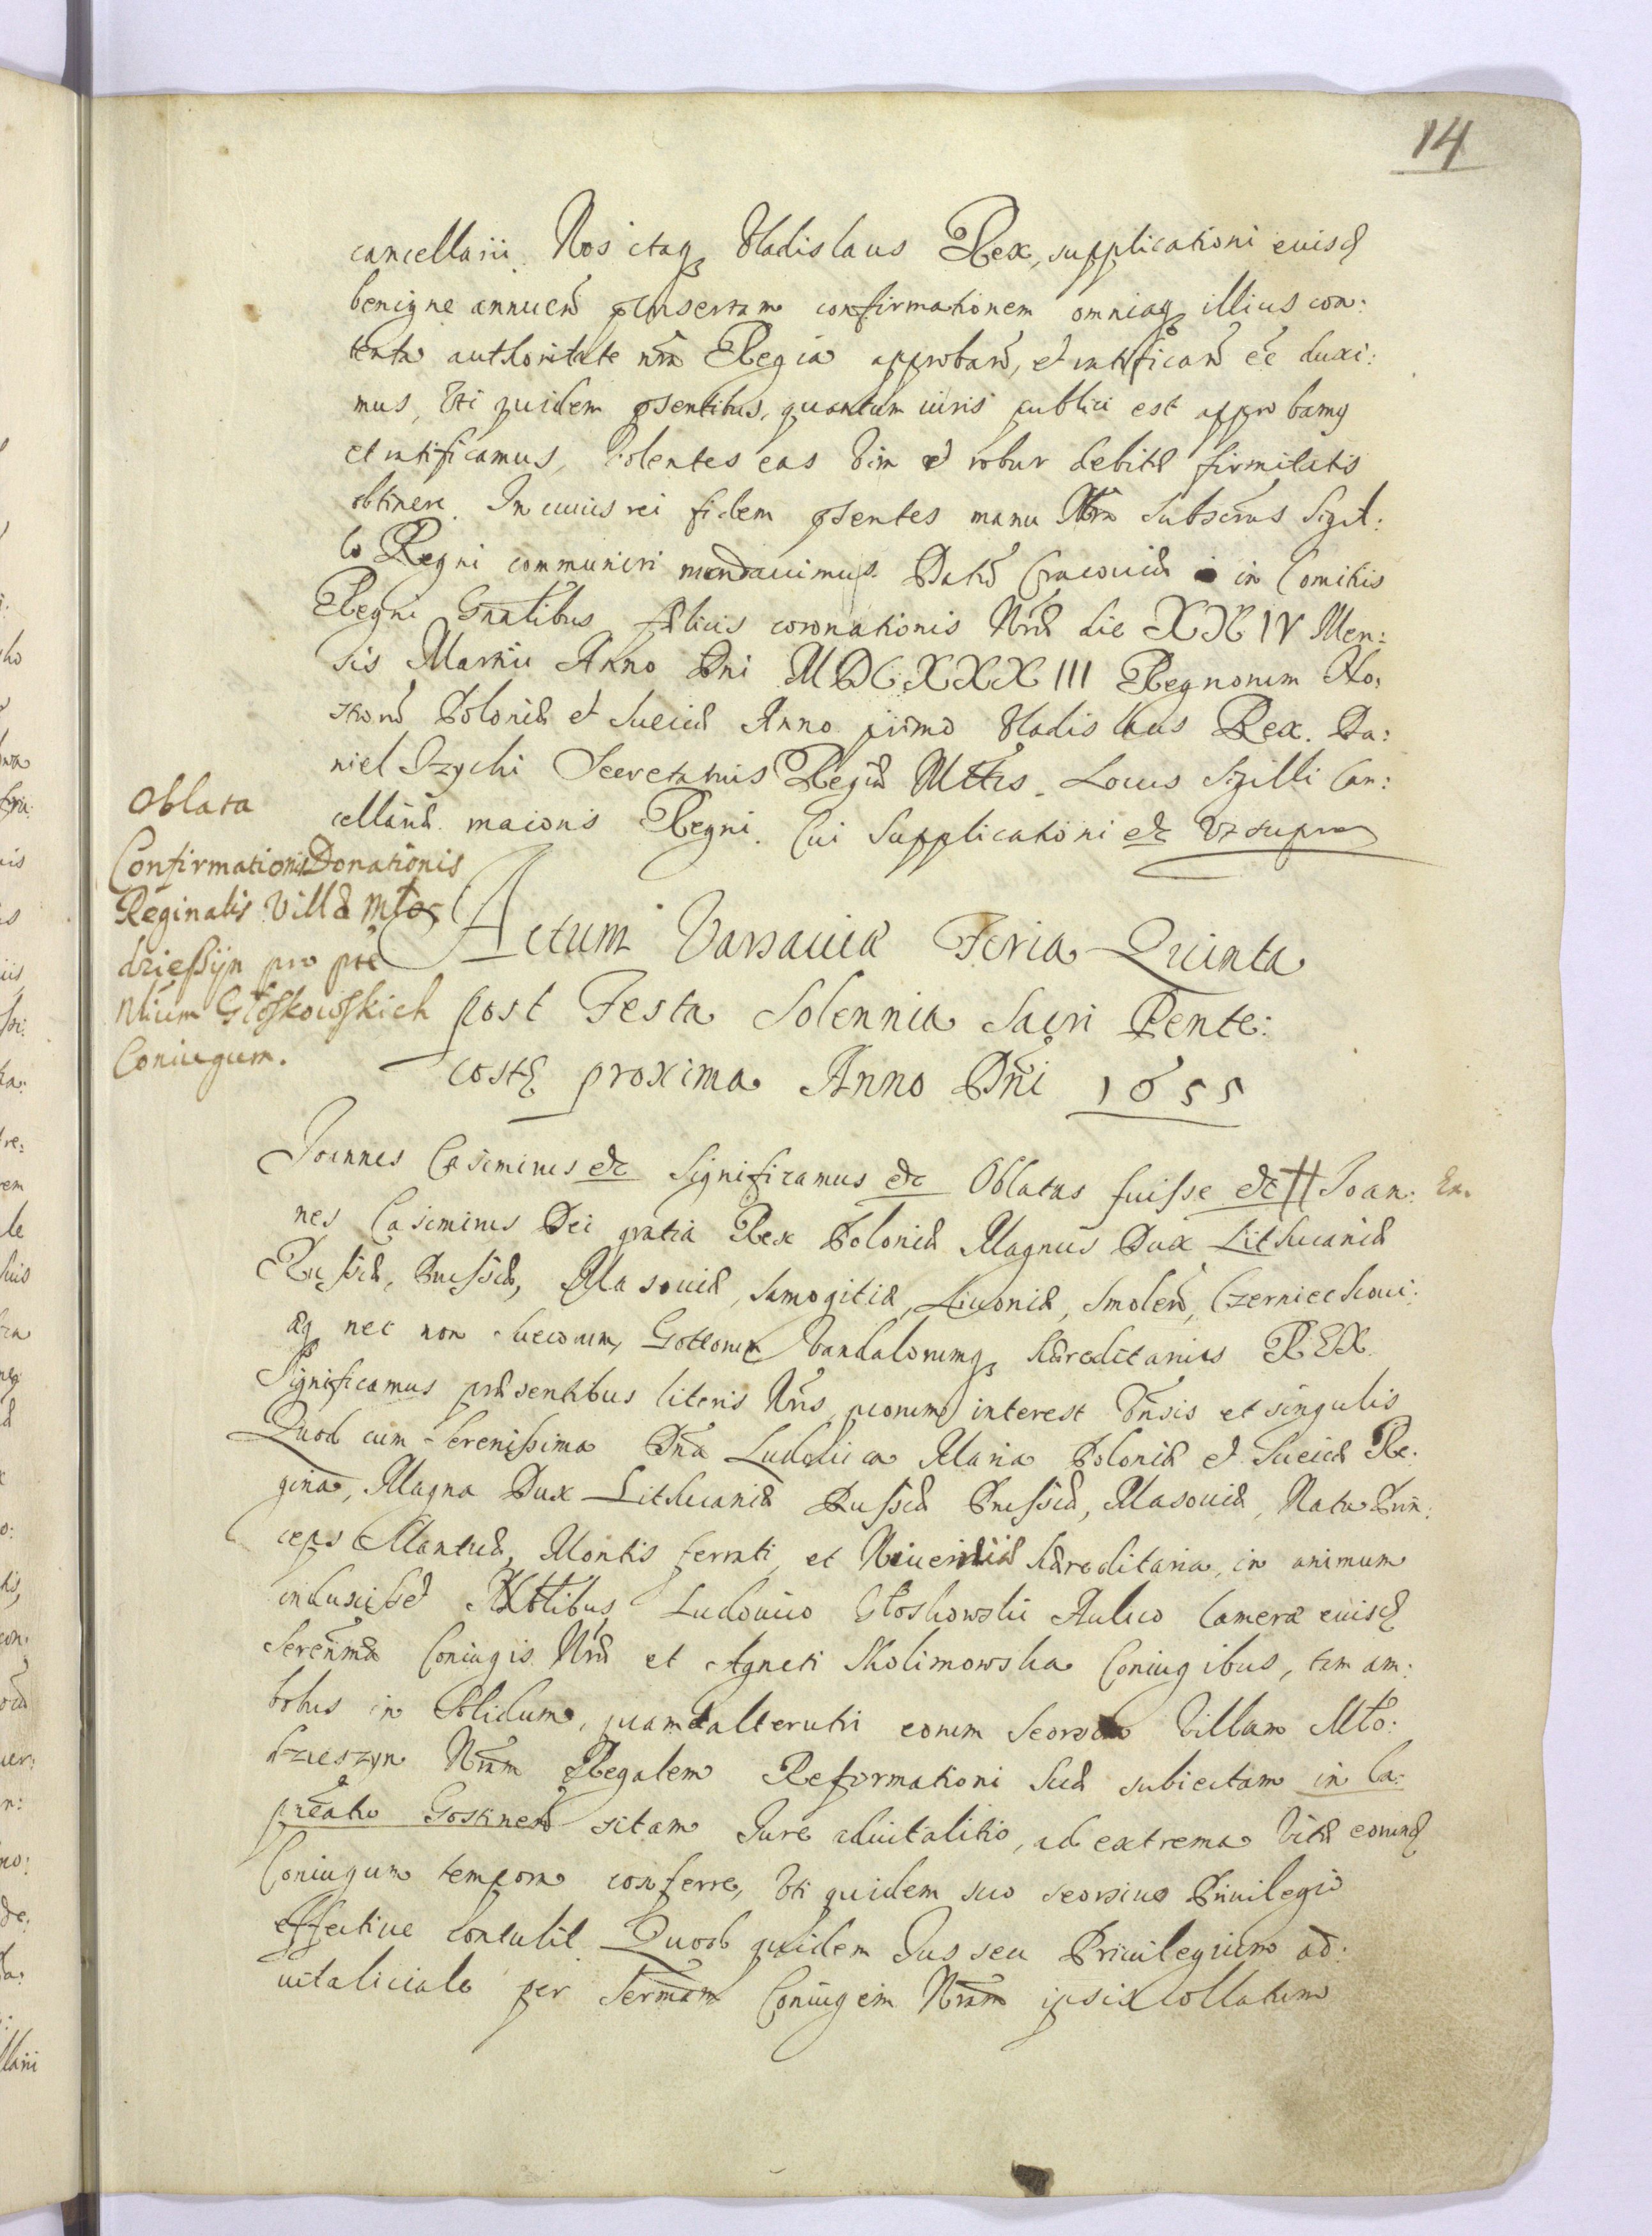 14
cancellarii. Nos itaq Vladislaus Rex, supplicationi euisd
benigne annuend pnsertam confirmationem omniaq illius con:
tenta authoritate nra Regia approband, et ratificand ee duxi:
mus, Vti quidem psentibus, quantum iuris publici est approbamq
et ratificamus, Volentes eas Vim et robur debitæ firmitatis
obtinere. In cuius rei fidem psentes manu Nra Subscras Sigil:
lo Regni communiri mandauimus. Datu Cracouiæ in Comitijs
Regni Gnalibus fælicis coronationis Nræ die XXIV Men:
sis Martii Anno Dni MDCXXXIII Regnorum No:
strorū Poloniæ et Sueciæ Anno primo Vladislaus Rex. Da:
niel Izycki Secretarius Regiæ Mttis. Locus Sigilli Can:
cellariæ maioris Regni. Cui Supplicationi etc Vt supra
Oblata
Confirmationis Donationis
Reginalis Villæ Mło
dzieszyn pro pte
Nlium Głoskowskich
Coniugum.
Actum Varsauiæ Feria Quinta
post Festa Solennia Sacri Pente:
costes proxima Anno Dni 1655
Ioannes Casimirus etc Significamus etc Oblatas fuisse etc # Ioan: En.
nes Casimirus Dei gratia Rex Poloniæ Magnus Dux Lithuaniæ
Russiæ, Prussiæ, Masouiæ, Samogitiæ, Liuoniæ, Smolen, Czerniechoui:
æq nec non Suecorum, Gottorum Vandalorumq hæreditarius REX.
Significamus præsentibus literis Nris, quorum interest Vnsis et singulis
Quod cum Serenissima Dna Ludouica Maria Poloniæ et Sueciæ Re:
gina, Magna Dux Lithuaniæ Russiæ Prussiæ, Masouiæ, Nata Prin:
ceps Mantuæ, Montis ferrati, et Niuerniæ hæreditaria, in animum
induxisset Nblibus Ludouico Głoskowski Aulico Cameræ euisd
Serenmæ Coniugis Nræ et Agneti Skolimowska Coniugibus, tam am:
bobus in Solidum, quam alterutri eorum Seorsim Villam Mło:
dzieszyn Nram Regalem Reformationi Suæ subiectam in Ca:
pneatu Gostinen sitam Iure aduitalitio, ad extrema Vitæ eorund
Coniugum tempora conferre, Vti quidem suo seorsiuo Priuilegio
effectiue contulit. Quod quidem Ius seu Priuilegium ad:
uitaliciale per Sermam Coniugem Nram ipsis collatum